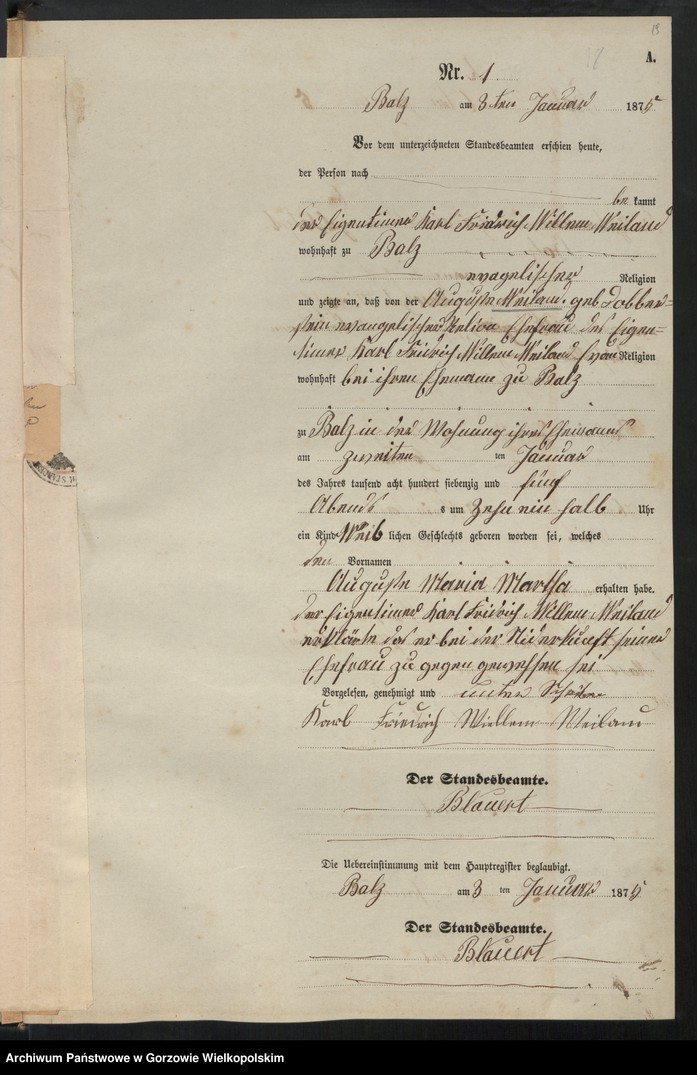 19
A.
Nr. 1
Balz am 3ten Januar 1875
Vor dem unterzeichneten Standesbeamten erschien heute,
der Person nach
be kannt
der Eigentümer Karl Fridrich Willem Weiland
wohnhaft zu Balz
evagelischer Religion
und zeigte an, daß von der Auguste Weiland, geb Dobber=
stein evangelischer Relion Ehefrau des Eigen=
tümer Karl Fridrich Willem Weiland Evan Religion
wohnhaft bei ihren Ehemann zu Balz
zu Balz in der Wohnung ihres Ehemans
am zweiten ten Januar
des Jahres tausend acht hundert siebenzig und fünf
Abends s um Zehn ein halb Uhr
ein Kind Weib lichen Geschlechts geboren worden sei, welches
den Vornamen
Auguste Maria Martha erhalten habe.
der Eigentümer Karl Fridrich Willem Weiland
erklärte das er bei der Niderkunft seiner
Ehefrau zu gegen gewessen sei
Vorgelesen, genehmigt und unter
Karl Friedrich Wiellem Weiland
Der Standesbeamte.
Blauert
Die Uebereinstimmung mit dem Hauptregister beglaubigt.
Balz am 3 ten Januar 1875
Der Standesbeamte.
Blauert
Archiwum Państwowe w Gorzowie Wielkopolskim